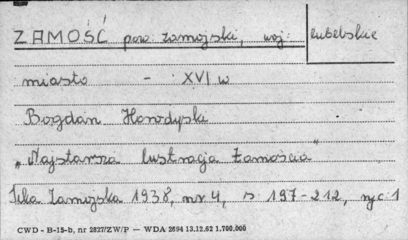 ZAMOŚĆ pow. zamojski, woj: lubelskie
miasto - XVI w
Bogdan Horodyski
"Najstarsza lustracja Zamościa"
Teka Zamojska 1938, nr 4, s 197-212, ryc 1
CWD - B-15-b, nr 2827/ZW/P — WDA 2694 13.12.62 1.700.000